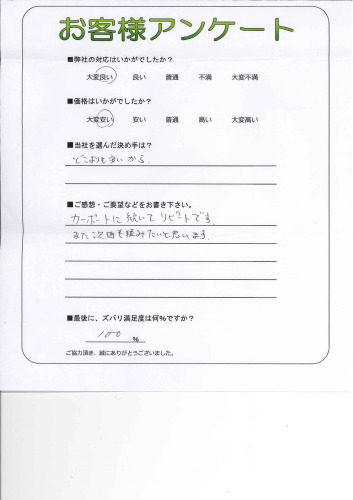 お客様アンケート
■弊社の対応はいかがでしたか？
大変良い 良い 普通 不満 大変不満
■価格はいかがでしたか？
大変安い 安い 普通 高い 大変高い
■当社を選んだ決め手は？
どこよりも安いから
■ご感想・ご要望などをお書き下さい。
カーポートに続いてリピートです。
また次回も頼みたいと思います。
■最後に、ズバリ満足度は何％ですか？
100 %
ご協力頂き、誠にありがとうございました。